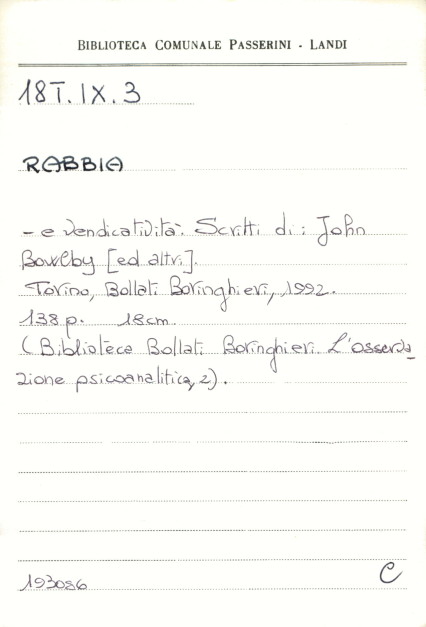 BIBLIOTECA COMUNALE PASSERINI - LANDI
18T.IX.3
RABBIA
- e vendicatività. Scritti di: John
Bowlby [ed altri].
Torino, Bollati Boringhieri, 1992.
138 p. 18cm.
(Biblioteca Bollati Boringhieri. L'osserva_
zione psicoanalitica, 2).
193086
C